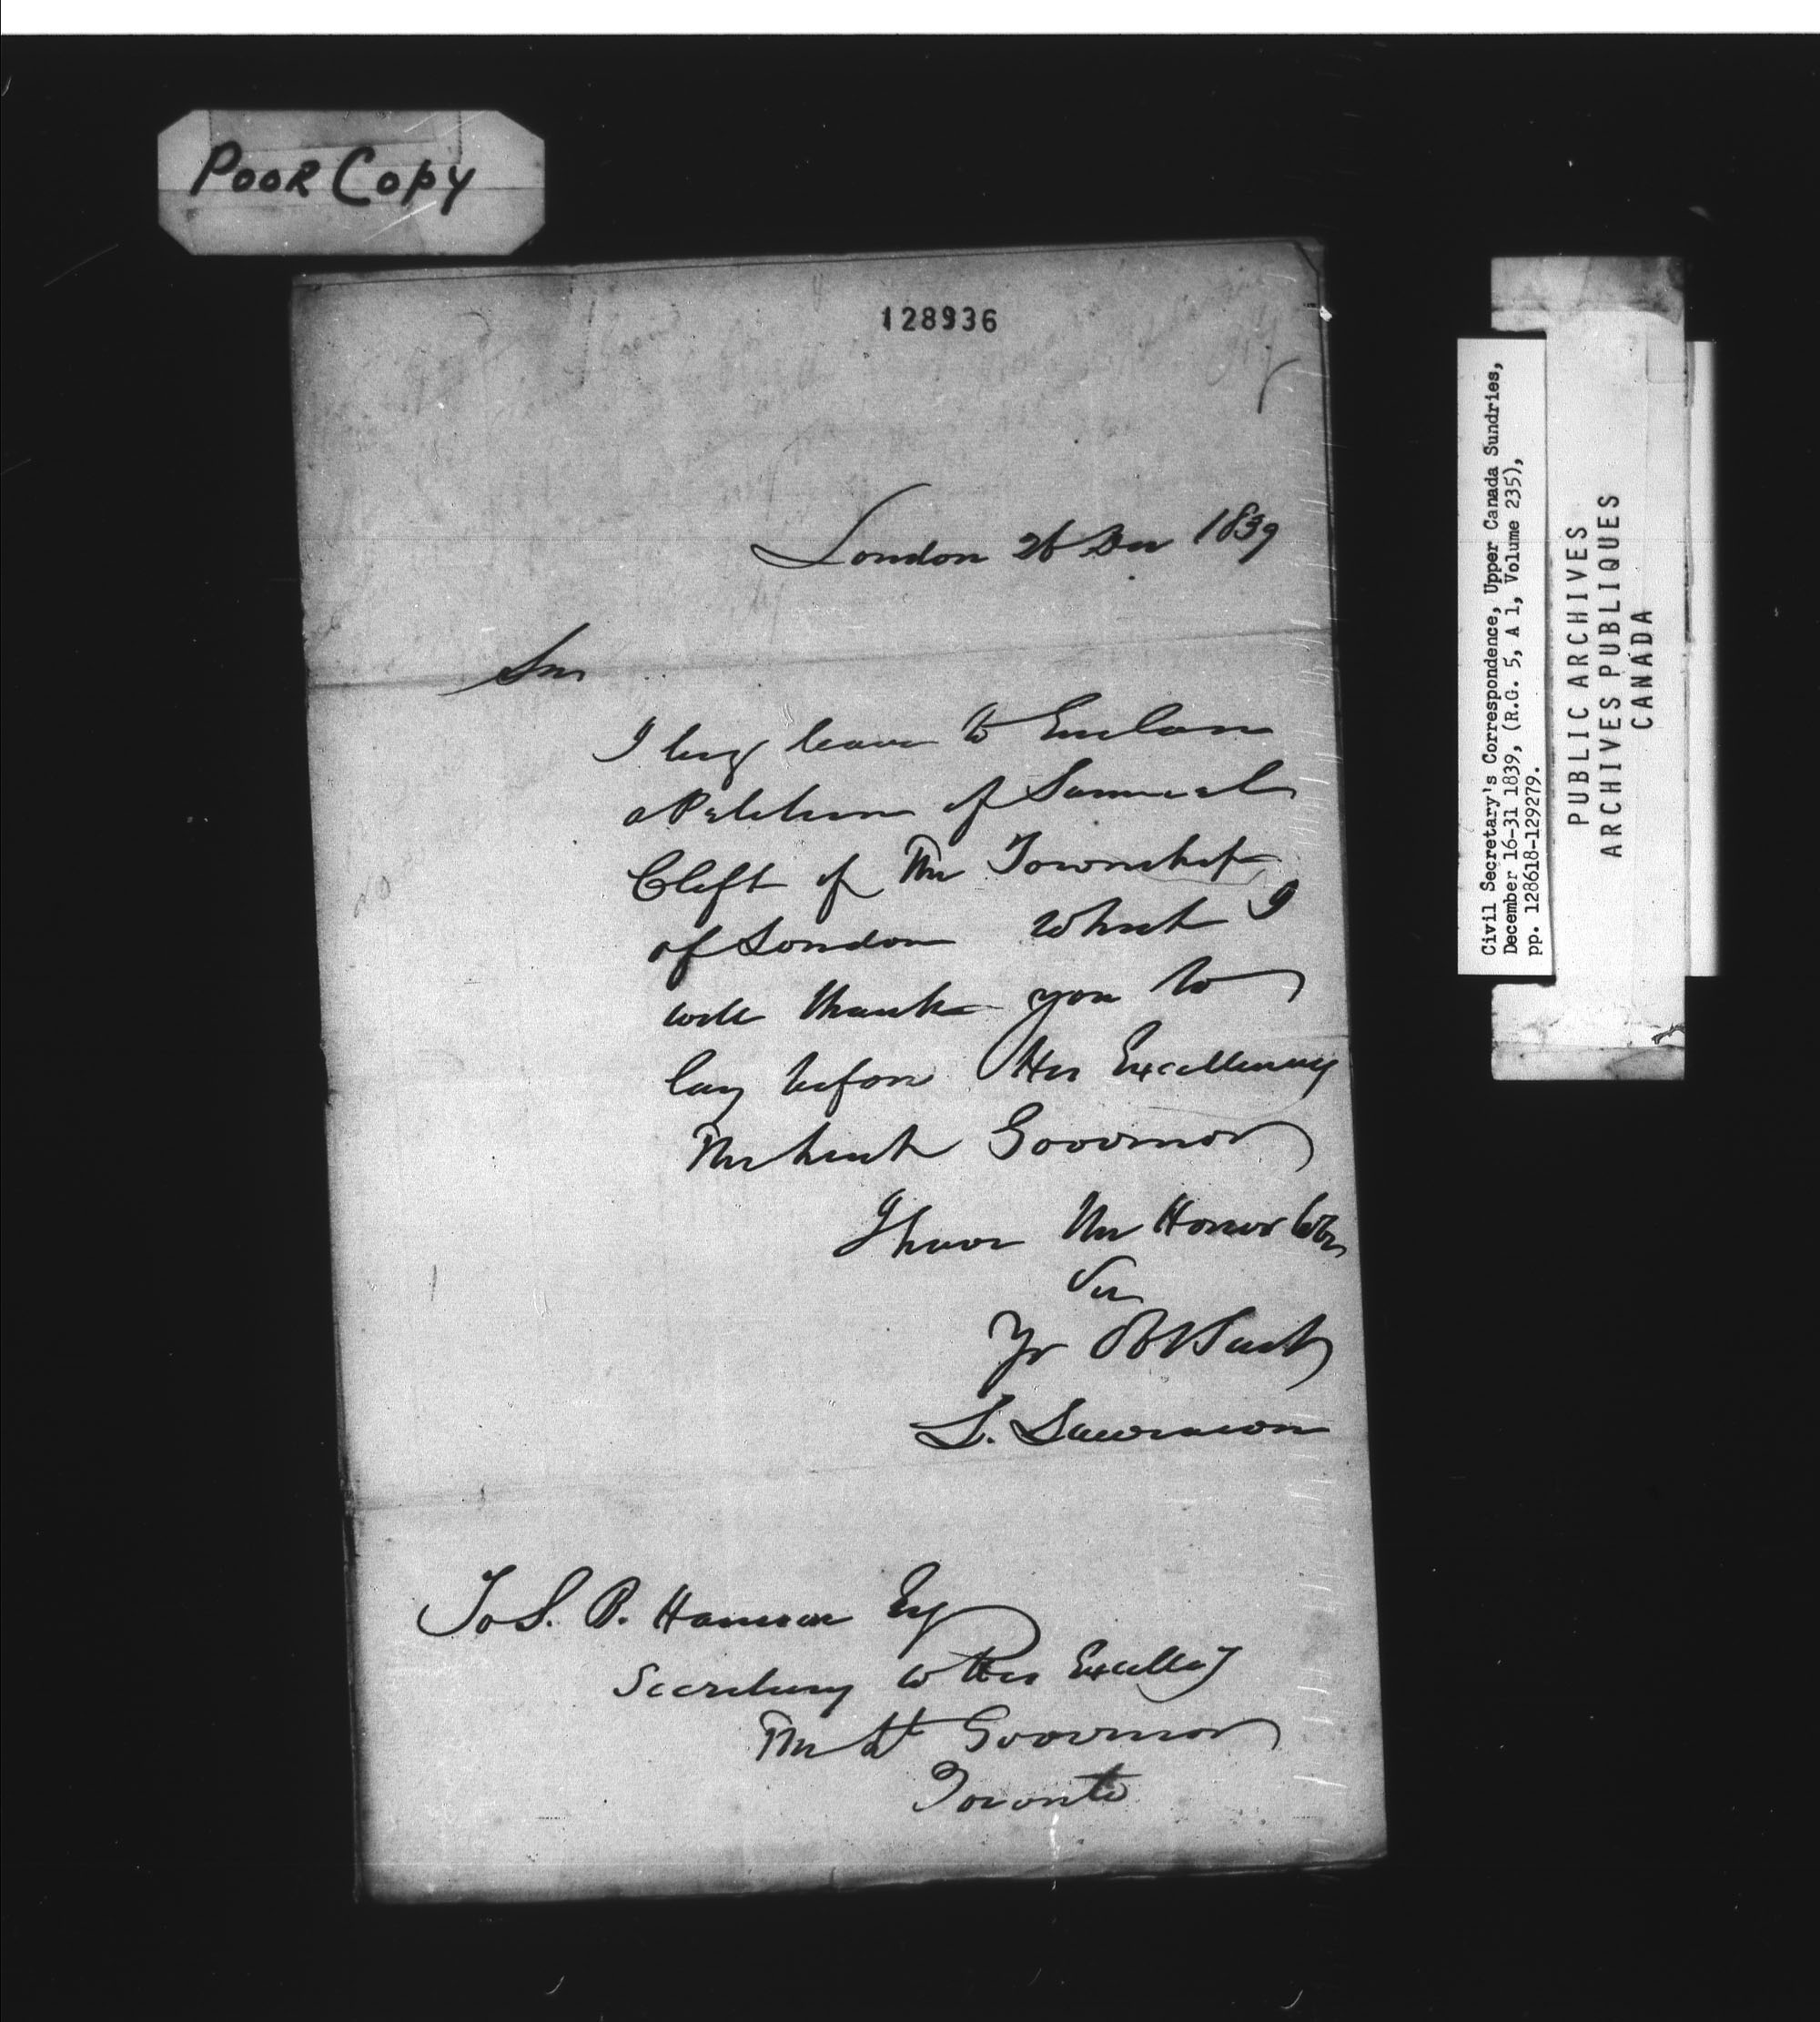 POOR COPY
128936
London 26 Decr 1839
Sir
I beg leave to Enclose
a Petition of Samuel
Clift of the Township
of London which I
will thank you to
lay before His Excellency
The Lieut Governor
I have the Honor to be
Sir
Yr Obt Servt
L. Lawrason
To S. B. Harrison Esq
Secretary to His Excelley
The Lt Governor
Toronto
Civil Secretary's Correspondence, Upper Canada Sundries,
December 16-31 1839, (R.G. 5, A 1, Volume 235),
pp. 128618-129279.
PUBLIC ARCHIVES
ARCHIVES PUBLIQUES
CANADA